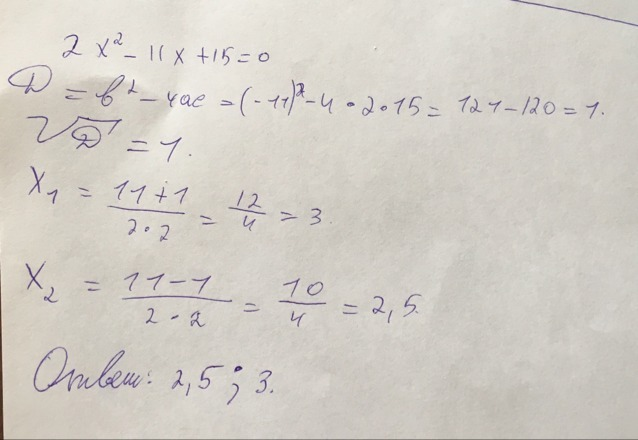 2x² - 11x + 15 = 0
D = b² - 4ac = (-11)² - 4 • 2 • 15 = 121 - 120 = 1.
√D = 1.
x₁ = (11+1)/(2·2) = 12/4 = 3
x₂ = (11-1)/(2·2) = 10/4 = 2,5.
Ответ: 2,5 ; 3.